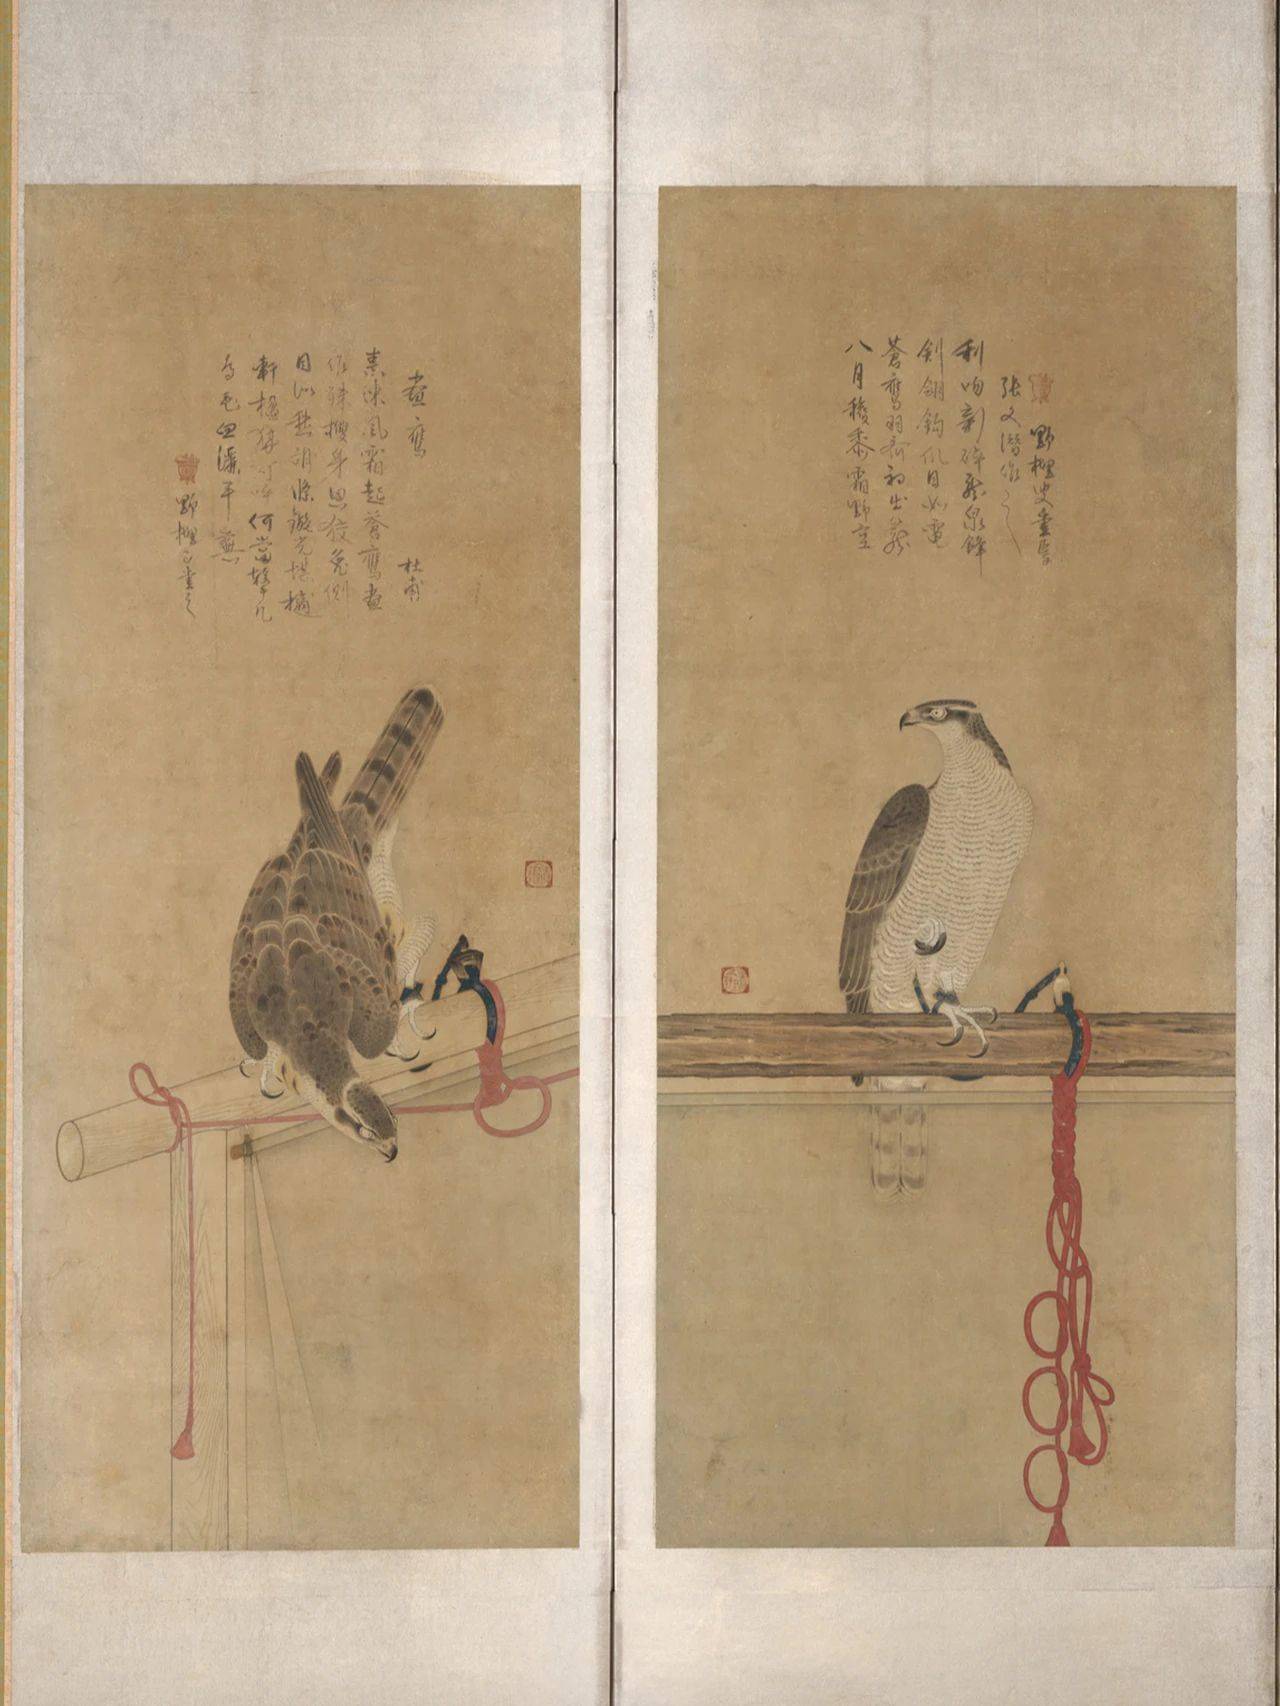 八月穫黍霜野空
蒼鷹羽齊初出籠
劍翎鉤爪目如電
利吻新淬龍泉鋒
張文潛作之
畫鷹
杜甫
素練風霜起蒼鷹畫
作殊㩳身思狡兔側
目似愁胡絛鏇光堪擿
軒楹勢可呼何當擊凡
鳥毛血灑平蕪